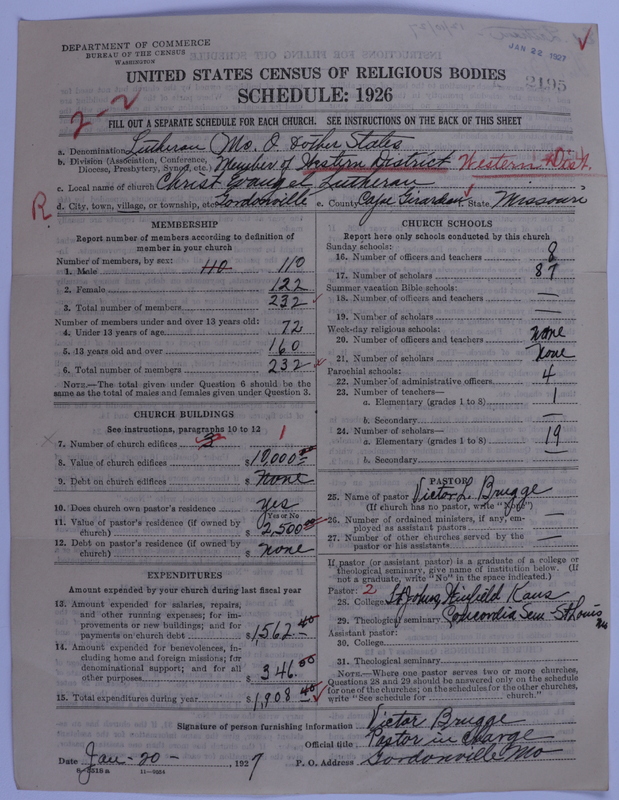 DEPARTMENT OF COMMERCE
BUREAU OF THE CENSUS
WASHINGTON
JAN 22 1927
2195
UNITED STATES CENSUS OF RELIGIOUS BODIES
SCHEDULE: 1926
2-2
FILL OUT A SEPARATE SCHEDULE FOR EACH CHURCH. SEE INSTRUCTIONS ON THE BACK OF THIS SHEET
a. Denomination Lutheran Mo. O. & other States
b. Division (Association, Conference, Diocese, Presbytery, Synod, etc.) Member of Western District Western Dist.
c. Local name of church Christ Evangel Lutheran
R
d. City, town, village, or township, etc. Gordonville e. County Cape Girardeau State Missouri
MEMBERSHIP
Report number of members according to definition of
member in your church
Number of members, by sex:
1. Male 110 110
2. Female 122
3. Total number of members 232
Number of members under and over 13 years old:
4. Under 13 years of age 72
5. 13 years old and over 160
6. Total number of members 232
NOTE.—The total given under Question 6 should be the
same as the total of males and females given under Question 3.
CHURCH BUILDINGS
See instructions, paragraphs 10 to 12
7. Number of church edifices 1
8. Value of church edifices $10,000 00
9. Debt on church edifices $ None
10. Does church own pastor's residence? yes
(Yes or No
11. Value of pastor's residence (if owned by
church) $2,500 00
12. Debt on pastor's residence (if owned by
church) $ none
EXPENDITURES
Amount expended by your church during last fiscal year
13. Amount expended for salaries, repairs,
and other running expenses; for im-
provements or new buildings; and for
payments on church debt $1,562 40
14. Amount expended for benevolences, in-
cluding home and foreign missions; for
denominational support; and for all
other purposes $346.00
15. Total expenditures during year $1,908 40
CHURCH SCHOOLS
Report here only schools conducted by this church
Sunday schools:
16. Number of officers and teachers 8
17. Number of scholars 87
Summer vacation Bible schools:
18. Number of officers and teachers —
19. Number of scholars —
Week-day religious schools:
20. Number of officers and teachers none
21. Number of scholars none
Parochial schools:
22. Number of administrative officers 4
23. Number of teachers—
a. Elementary (grades 1 to 8) 1
b. Secondary —
24. Number of scholars—
a. Elementary (grades 1 to 8) 19
b. Secondary —
PASTOR
25. Name of pastor Victor L. Brugge
(If church has no pastor, write "None")
26. Number of ordained ministers, if any, em-
ployed as assistant pastors —
27. Number of other churches served by the
pastor or his assistants —
If pastor (or assistant pastor) is a graduate of a college or
theological seminary, give name of institution below. (If
not a graduate, write "No" in the space indicated.)
Pastor: 2
28. College St Johns, Winfield Kans
29. Theological seminary Concordia Sem St Louis Mo
Assistant pastor:
30. College
31. Theological seminary
NOTE.—Where one pastor serves two or more churches,
Questions 28 and 29 should be answered only on the schedule
for one of the churches; on the schedules for the other churches,
write "See schedule for church."
Signature of person furnishing information Victor Brugge
Official title Pastor in Charge
Date Jan-20-, 1927 P. O. Address Gordonville Mo
8-2518a 11-9224